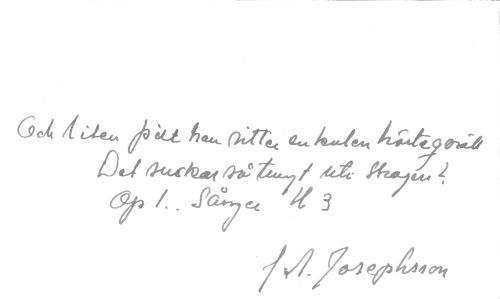 Och liten pilt han sitter en kulen höstegväll
Det suckar så tungt uti skogen!
Op 1.. Sånger H 3
J A. Josephsson